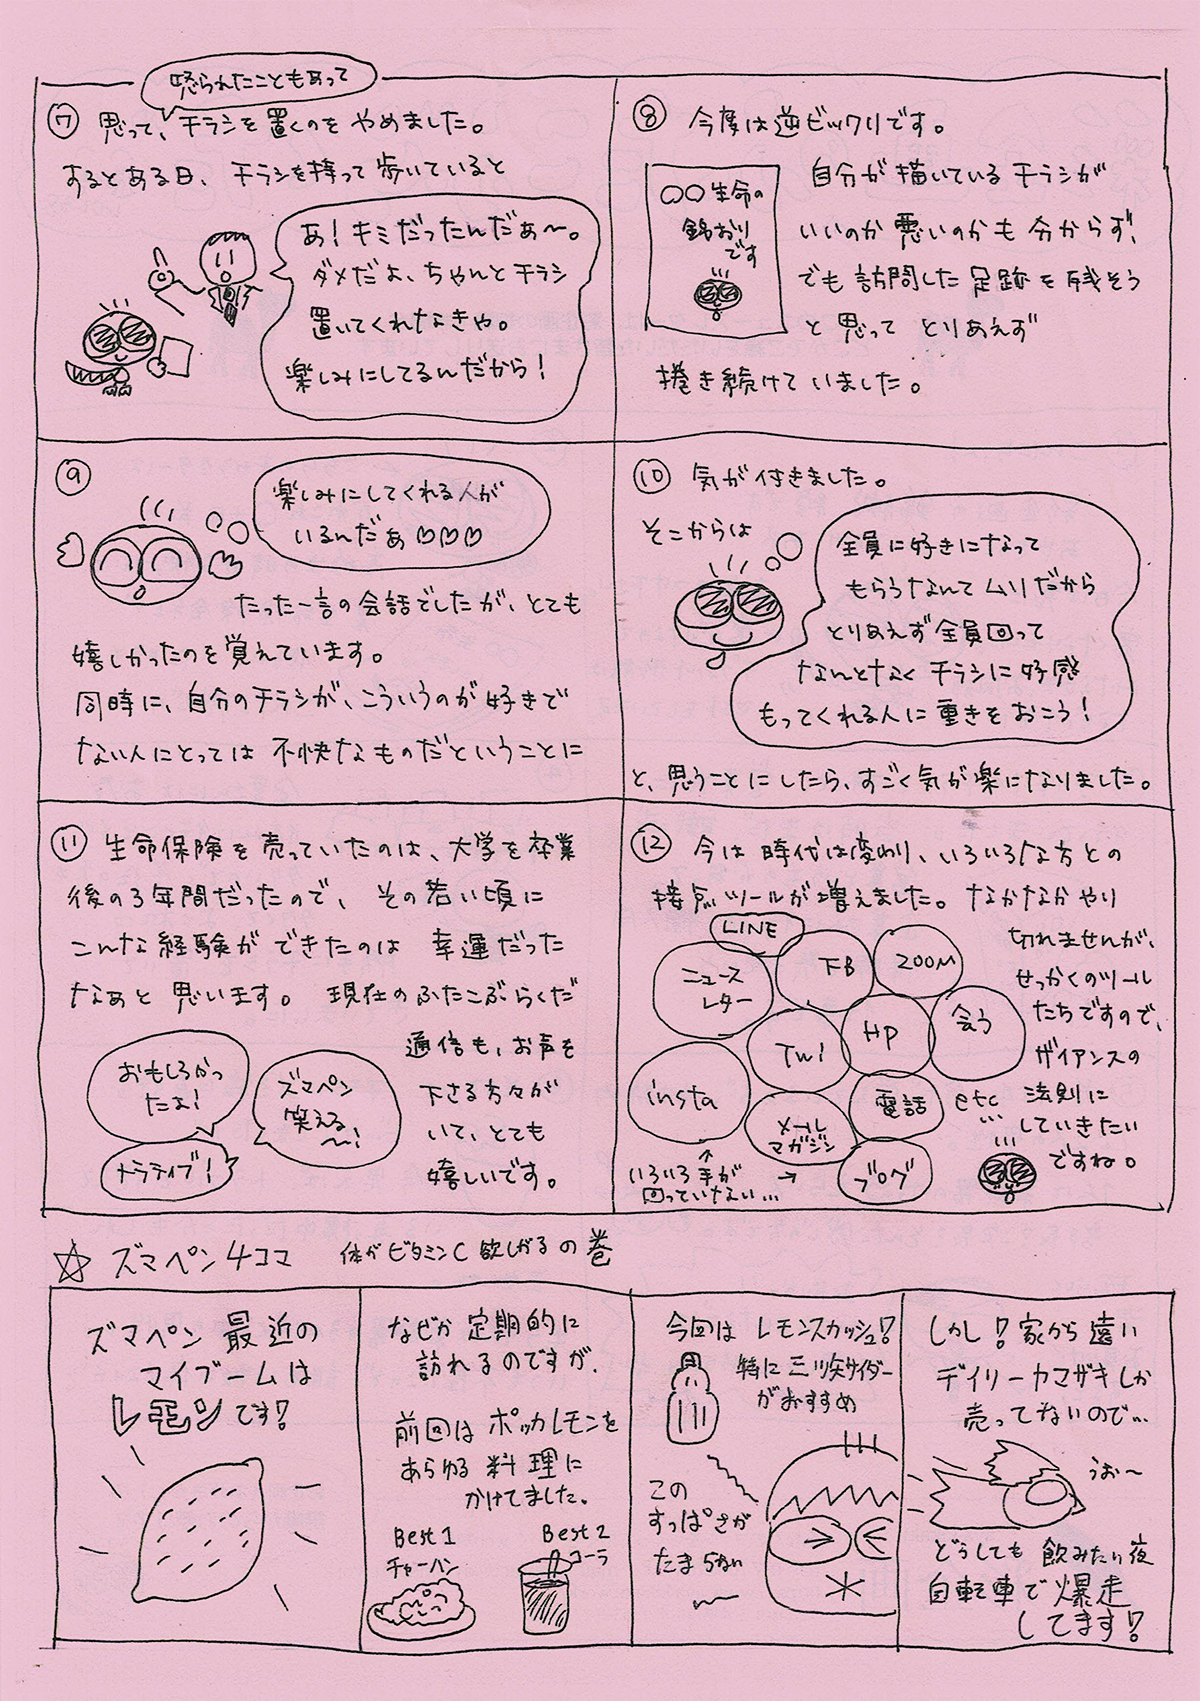 怒られたこともあって
⑦ 思って、チラシを置くのをやめました。
するとある日、チラシを持って歩いていると
あ!キミだったんだぁ〜。
ダメだよ、ちゃんとチラシ
置いてくれなきゃ。
楽しみにしてるんだから!
⑧ 今度は逆ビックリです。
〇〇生命の
錦おり
です
自分が描いているチラシが
いいのか悪いのかも分からず、
でも訪問した足跡を残そう
と思って とりあえず
捲き続けていました。
⑨
楽しみにしてくれる人が
いるんだぁ♡♡♡
たった一言の会話でしたが、とても
嬉しかったのを覚えています。
同時に、自分のチラシが、こういうのが好きで
ない人にとっては不快なものだということに
⑩ 気が付きました。
そこからは
全員に好きになって
もらうなんてムリだから
とりあえず全員回って
なんとなくチラシに好感
もってくれる人に重きをおこう!
と、思うことにしたら、すごく気が楽になりました。
⑪ 生命保険を売っていたのは、大学を卒業
後の3年間だったので、その若い頃に
こんな経験ができたのは 幸運だった
なぁと思います。現在のふたこぶらくだ
通信も、お声を
下さる方々が
いて、とても
嬉しいです。
おもしろかっ
たよ!
ズマペン
笑える
〜!
ドラティブ!
⑫ 今は時代は変わり、いろいろな方との
接点ツールが増えました。なかなかやり
切れませんが、
せっかくのツール
たちですので、
ザイアンスの
法則に
していきたい
ですね。
LINE
ニュース
レター
FB
ZOOM
Twi
HP
会う
insta
メール
マガジン
電話
etc
...
ブログ
↑
いろいろ手が
回っていない... →
☆ ズマペン4コマ 体がビタミンC欲しがるの巻
ズマペン最近の
マイブームは
レモンです!
なぜか定期的に
訪れるのですが、
前回はポッカレモンを
あらゆる料理に
かけてました。
Best1
チャーハン
Best2
コーラ
今回はレモンスカッシュ!
特に三ツ矢サイダー
がおすすめ
この
すっぱさが
たまらない
しかし!家から遠い
デイリーヤマザキしか
売ってないので...
うお〜
どうしても飲みたい夜
自転車で爆走
してます!